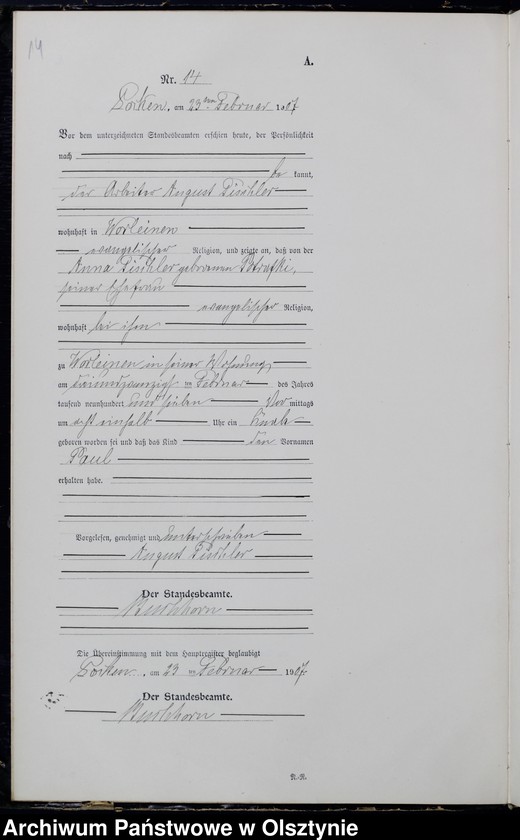 14
A.
Nr. 14
Sorken, am 23ten Februar 1907
Vor dem unterzeichneten Standesbeamten erschien heute, der Persönlichkeit
nach
be kannt,
der Arbeiter August Tischler
wohnhaft in Worleinen
evangelischer Religion, und zeigte an, daß von der
Anna Tischler geborenen
seiner Ehefrau
evangelischer Religion,
wohnhaft bei ihm
zu Worleinen in seiner Wohnung
am dreiundzwanzigsten Februar des Jahres
tausend neunhundert und sieben Vor mittags
um acht einhalb Uhr ein Knabe
geboren worden sei und daß das Kind den Vornamen
Paul
erhalten habe.
Vorgelesen, genehmigt und unterschrieben
August Tischler
Der Standesbeamte.
Buchhorn
Die Übereinstimmung mit dem Hauptregister beglaubigt
Sorken, am 23 ten Februar 1907
Der Standesbeamte.
Buchhorn
N.-R.
Archiwum Państwowe w Olsztynie